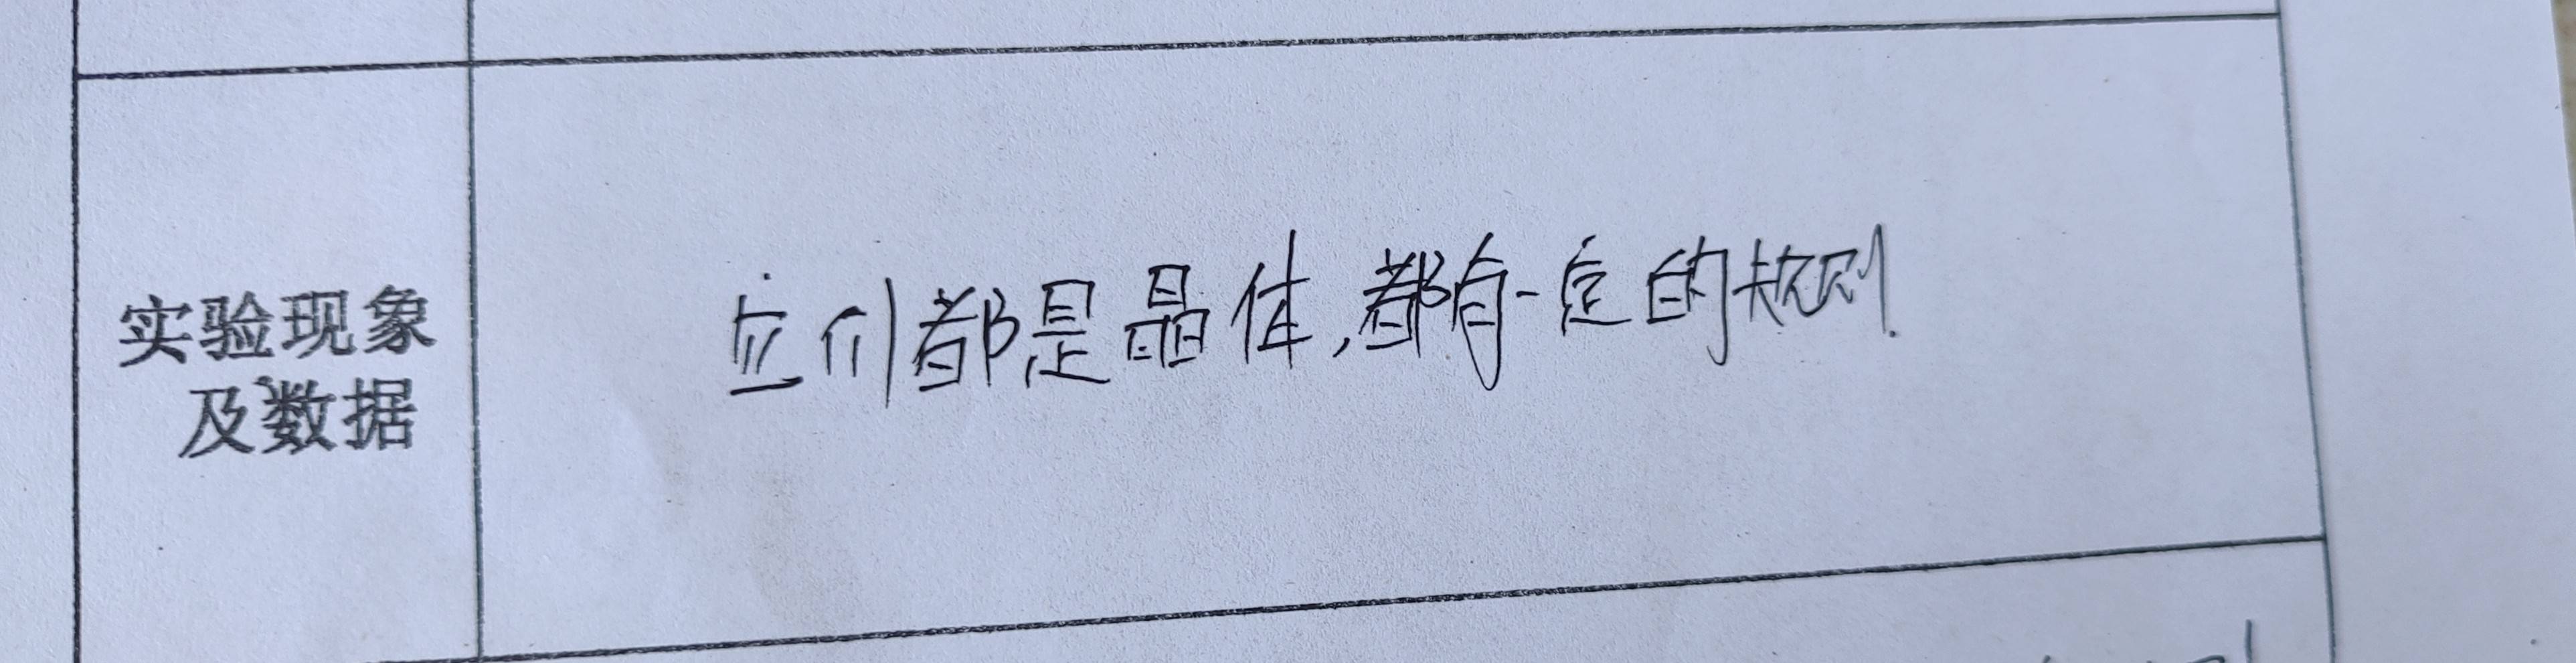 实验现象
及数据
它们都是晶体,都有一定的规则.